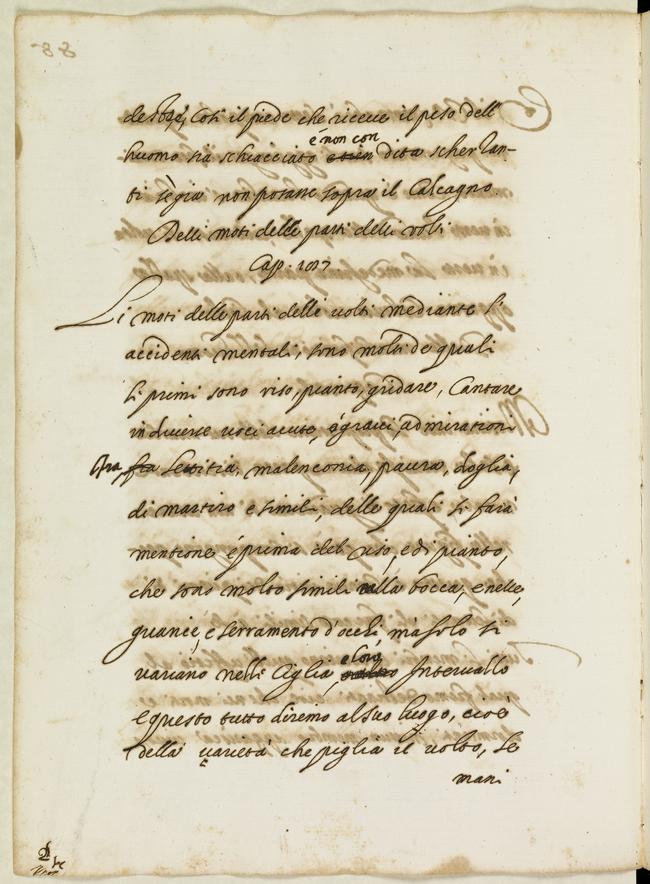 88
Così il piede che riceve il peso dell'
é non con
huomo sia schiacciato dita scherzan-
ti se gia non posasse sopra il Calcagno.
Delli moti delle parti delli volti
Cap.
Li moti delle parti delli volti mediante li
accidenti mentali, sono molti de quali
li primi sono riso, pianto, gridare, Cantare
in diverse voci acute, é gravi, admirationi
ira, letitia, malenconia, paura, doglia,
di martiro e simili, delle quali si farà
mentione é prima del riso, e di pianto,
che sono molto simili nella bocca, e nelle,
guancie, e serramento d'occhi, mà solo si
e loro
variano nelle Ciglia, Intervallo
e questo tutto diremo al suo luogo, cioe
della varietà che piglia il volto, le
mani